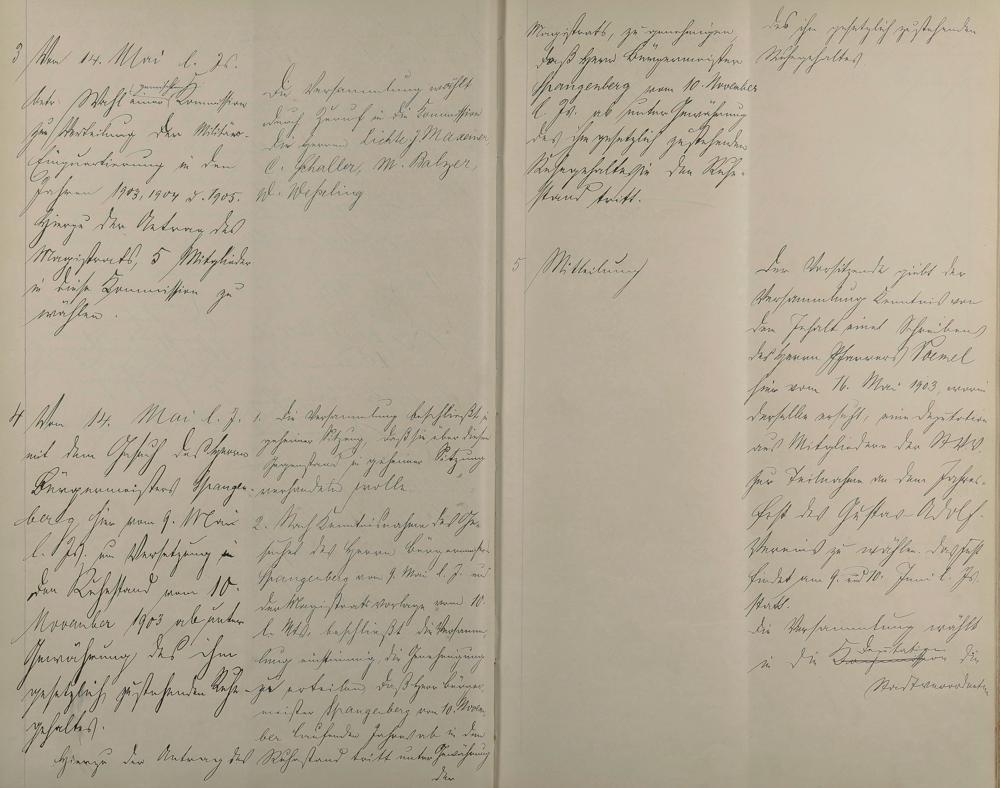 3 Vom 14. Mai l. Js.
betr. Wahl einer gemischten Kommission
zur Verteilung der Militär-
Einquartierung in den
Jahren 1903, 1904 u. 1905.
Hierzu der Antrag des
Magistrats, 5 Mitglieder
in diese Kommission zu
wählen.
Die Versammlung wählt
durch Zuruf in die Kommission
die Herren Lichte, J. Maxeiner,
C. Schaller, M. Balzer,
W. Weßling
4 Vom 14. Mai l. J.
mit dem Gesuch des Herrn
Bürgermeisters Spangen-
berg, hier vom 9. Mai
l. Js. um Versetzung in
den Ruhestand vom 10.
November 1903 ab unter
Gewährung des ihm
gesetzlich zustehenden Ruhe-
gehaltes.
Hierzu der Antrag des
1. Die Versammlung beschließt in
geheimer Sitzung, daß sie über diesen
Gegenstand in geheimer Sitzung
verhandeln wolle.
2. Nach Kenntnisnahme des Ge-
suches des Herrn Bürgermeister
Spangenberg vom 9. Mai l. J. und
der Magistratsvorlage vom 10.
l. Mts. beschließt die Versamm-
lung einstimmig, die Genehmigung
zu erteilen daß Herr Bürger-
meister Spangenberg vom 10. Novem-
ber laufenden Jahres ab in den
Ruhestand tritt unter Gewährung
der
Magistrats, zu genehmigen,
daß Herr Bürgermeister
Spangenberg vom 10. November
l. Js. ab unter Gewährung
des ihm gesetzlich zustehenden
Ruhegehaltes in den Ruhe-
stand tritt.
des ihm gesetzlich zustehenden
Ruhegehaltes
5 Mitteilung
Der Vorsitzende giebt der
Versammlung Kenntnis von
dem Inhalt eines Schreibens
des Herrn Pfarrers Voemel
hier vom 16. Mai 1903, worin
derselbe ersucht, eine Deputation
aus Mitgliedern der St.V.V.
zur Teilnahme an dem Jahres-
fest des Gustav-Adolf-
Vereins zu wählen. Das Fest
findet am 9. und 10. Juni l. Js.
statt.
Die Versammlung wählt
in die Kommission Deputation die
Stadtverordneten